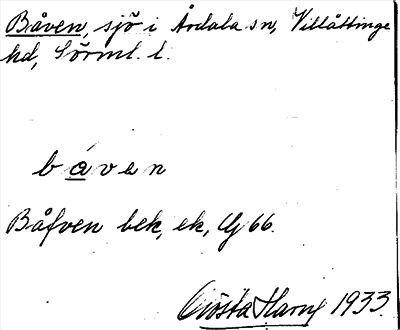 Båven, sjö i Årdala sn, Villåttinge
hd, Sörml. l.
båven
Båfven bek, ek, Gj 66.
Gösta Harng 1933.